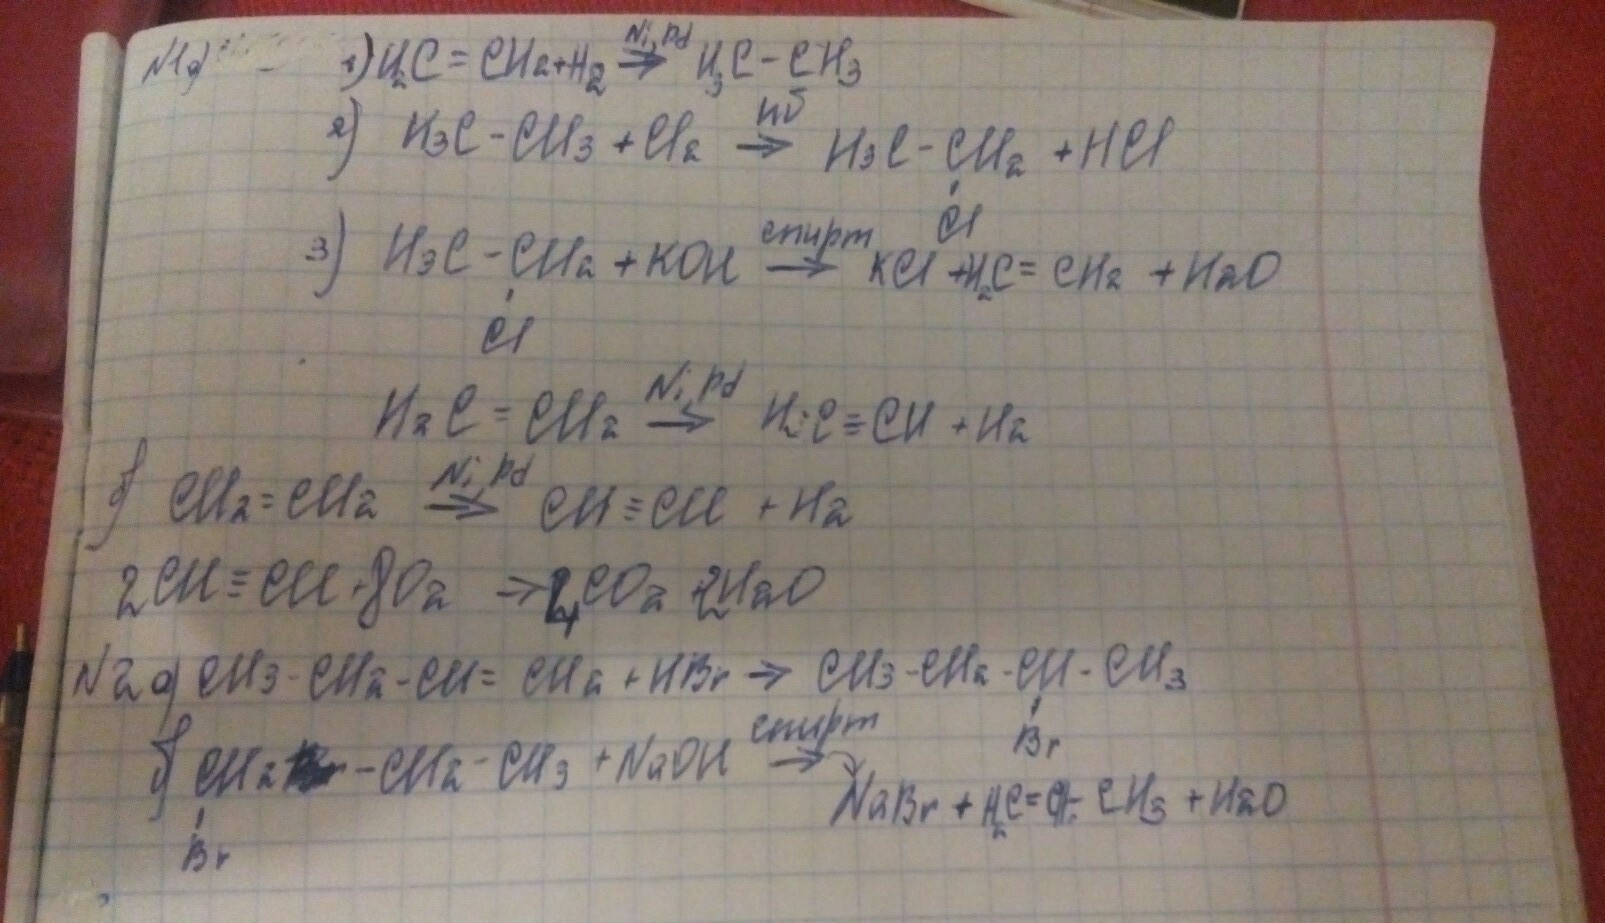 N1 а) 1) H₂C = CH₂ + H₂ Ni, Pd → H₃C - CH₃
2) H₃C - CH₃ + Cl₂ hδ → H₃C - CH₂ + HCl
Cl
3) H₃C - CH₂ + KOH спирт → KCl + H₂C = CH₂ + H₂O
Cl
H₂C = CH₂ Ni, Pd → HC ≡ CH + H₂
б) CH₂ = CH₂ Ni, Pd → CH ≡ CH + H₂
2CH ≡ CH + O₂ → 4CO₂ + 2H₂O
N2 а) CH₃ - CH₂ - CH = CH₂ + HBr → CH₃ - CH₂ - CH - CH₃
Br
б) CH₂ - CH₂ - CH₃ + NaOH спирт →
Br
NaBr + H₂C = CH - CH₃ + H₂O